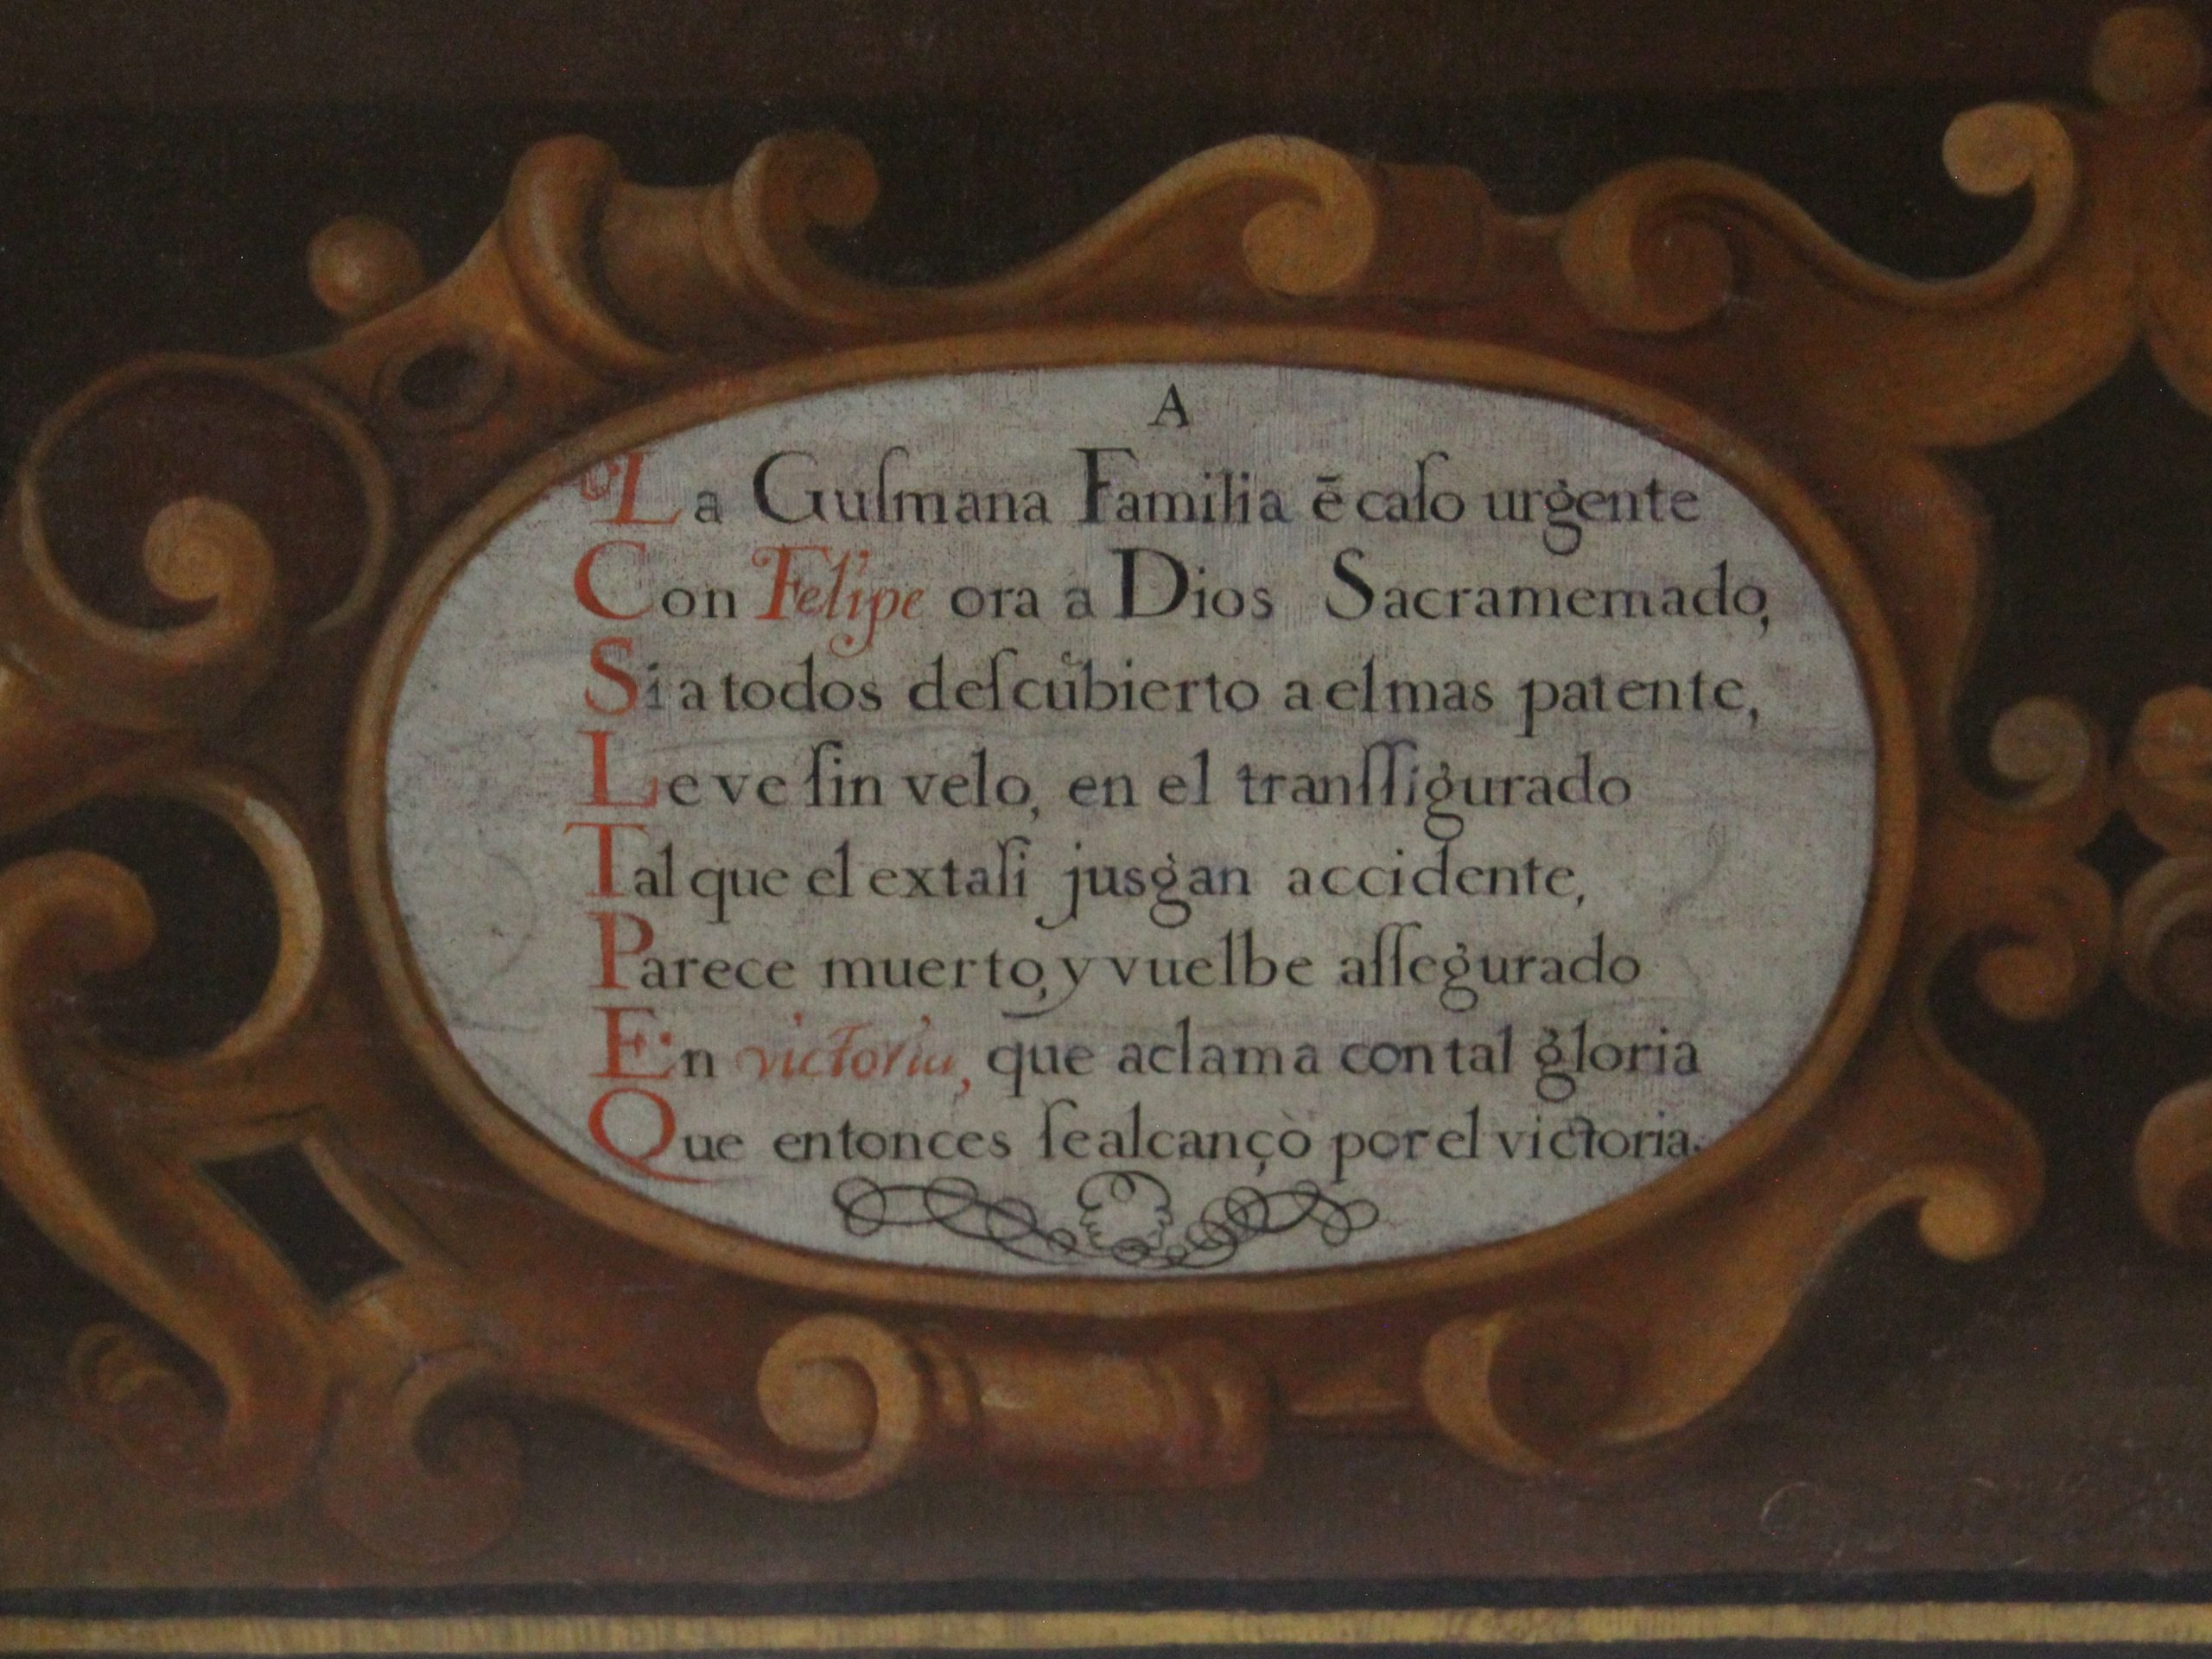 A
La Guſmana Familia ē caſo urgente
Con Felipe ora a Dios Sacramemado,
Si a todos deſcubierto a el mas patente,
Le ve ſin velo, en el tranſſigurado
Tal que el extaſi jusgan accidente,
Parece muerto, y vuelbe aſſegurado
En victoria, que aclama con tal gloria
Que entonces ſe alcançò por el victoria.